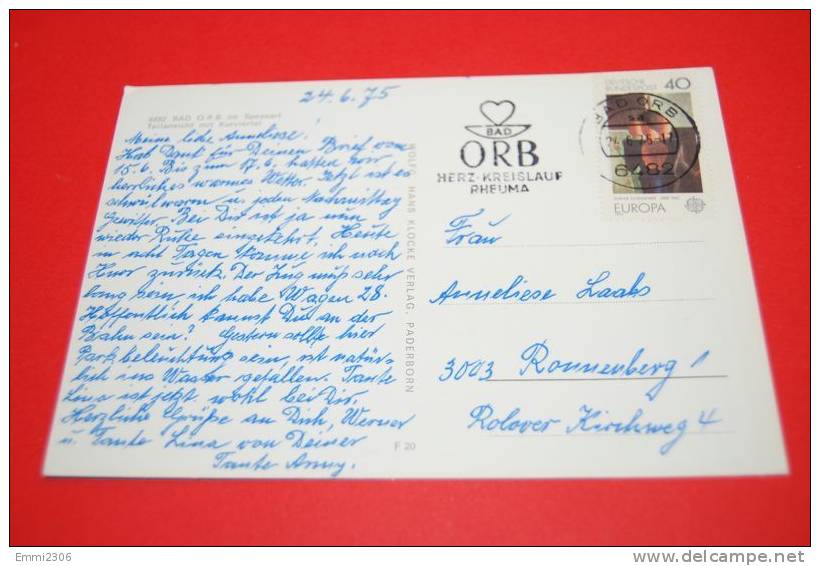 24.6.75
6482 BAD ORB im Spessart
Teilansicht mit Kurviertel
Meine liebe Anneliese!
Hab Dank für Deinen Brief vom
15.6. Bis zum 17.6. hatten wir
herrliches warmes Wetter. Jetzt ist es
schwül warm u. jeden Nachmittag
Gewitter. Bei Dir ist ja nun
wieder Ruhe eingekehrt. Heute
in acht Tagen komme ich nach
zurück. Der Zug muß sehr
lang sein ich habe Wagen 28.
Hoffentlich kannst Du an der
Bahn sein? Gestern sollte hier
Parkbeleuchtung sein, ist natür-
lich ins Wasser gefallen. Tante
Lina ist jetzt wohl bei Dir.
Herzliche Grüße an Dich, Werner
u. Tante Lina von Deiner
Tante Anny.
WOLFG. HANS KLOCKE VERLAG, PADERBORN
F 20
BAD
ORB
HERZ-KREISLAUF
RHEUMA
BAD ORB
6482
DEUTSCHE
BUNDESPOST
40
EUROPA
Frau
Anneliese Laabs
3003 Ronnenberg 1
Rolover Kirchweg 4
Emmi2306
delcampe.net